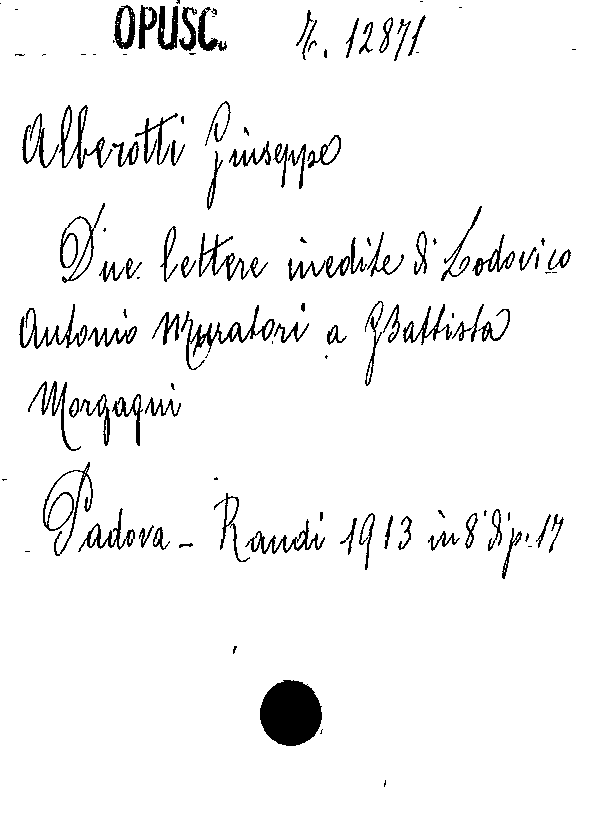 OPUSC. r. 12871
Alberotti Giuseppe
Due lettere inedite di Lodovico
Antonio Muratori a GBattista
Morgagni
Padova - Randi 1913 in 8° di p. 17